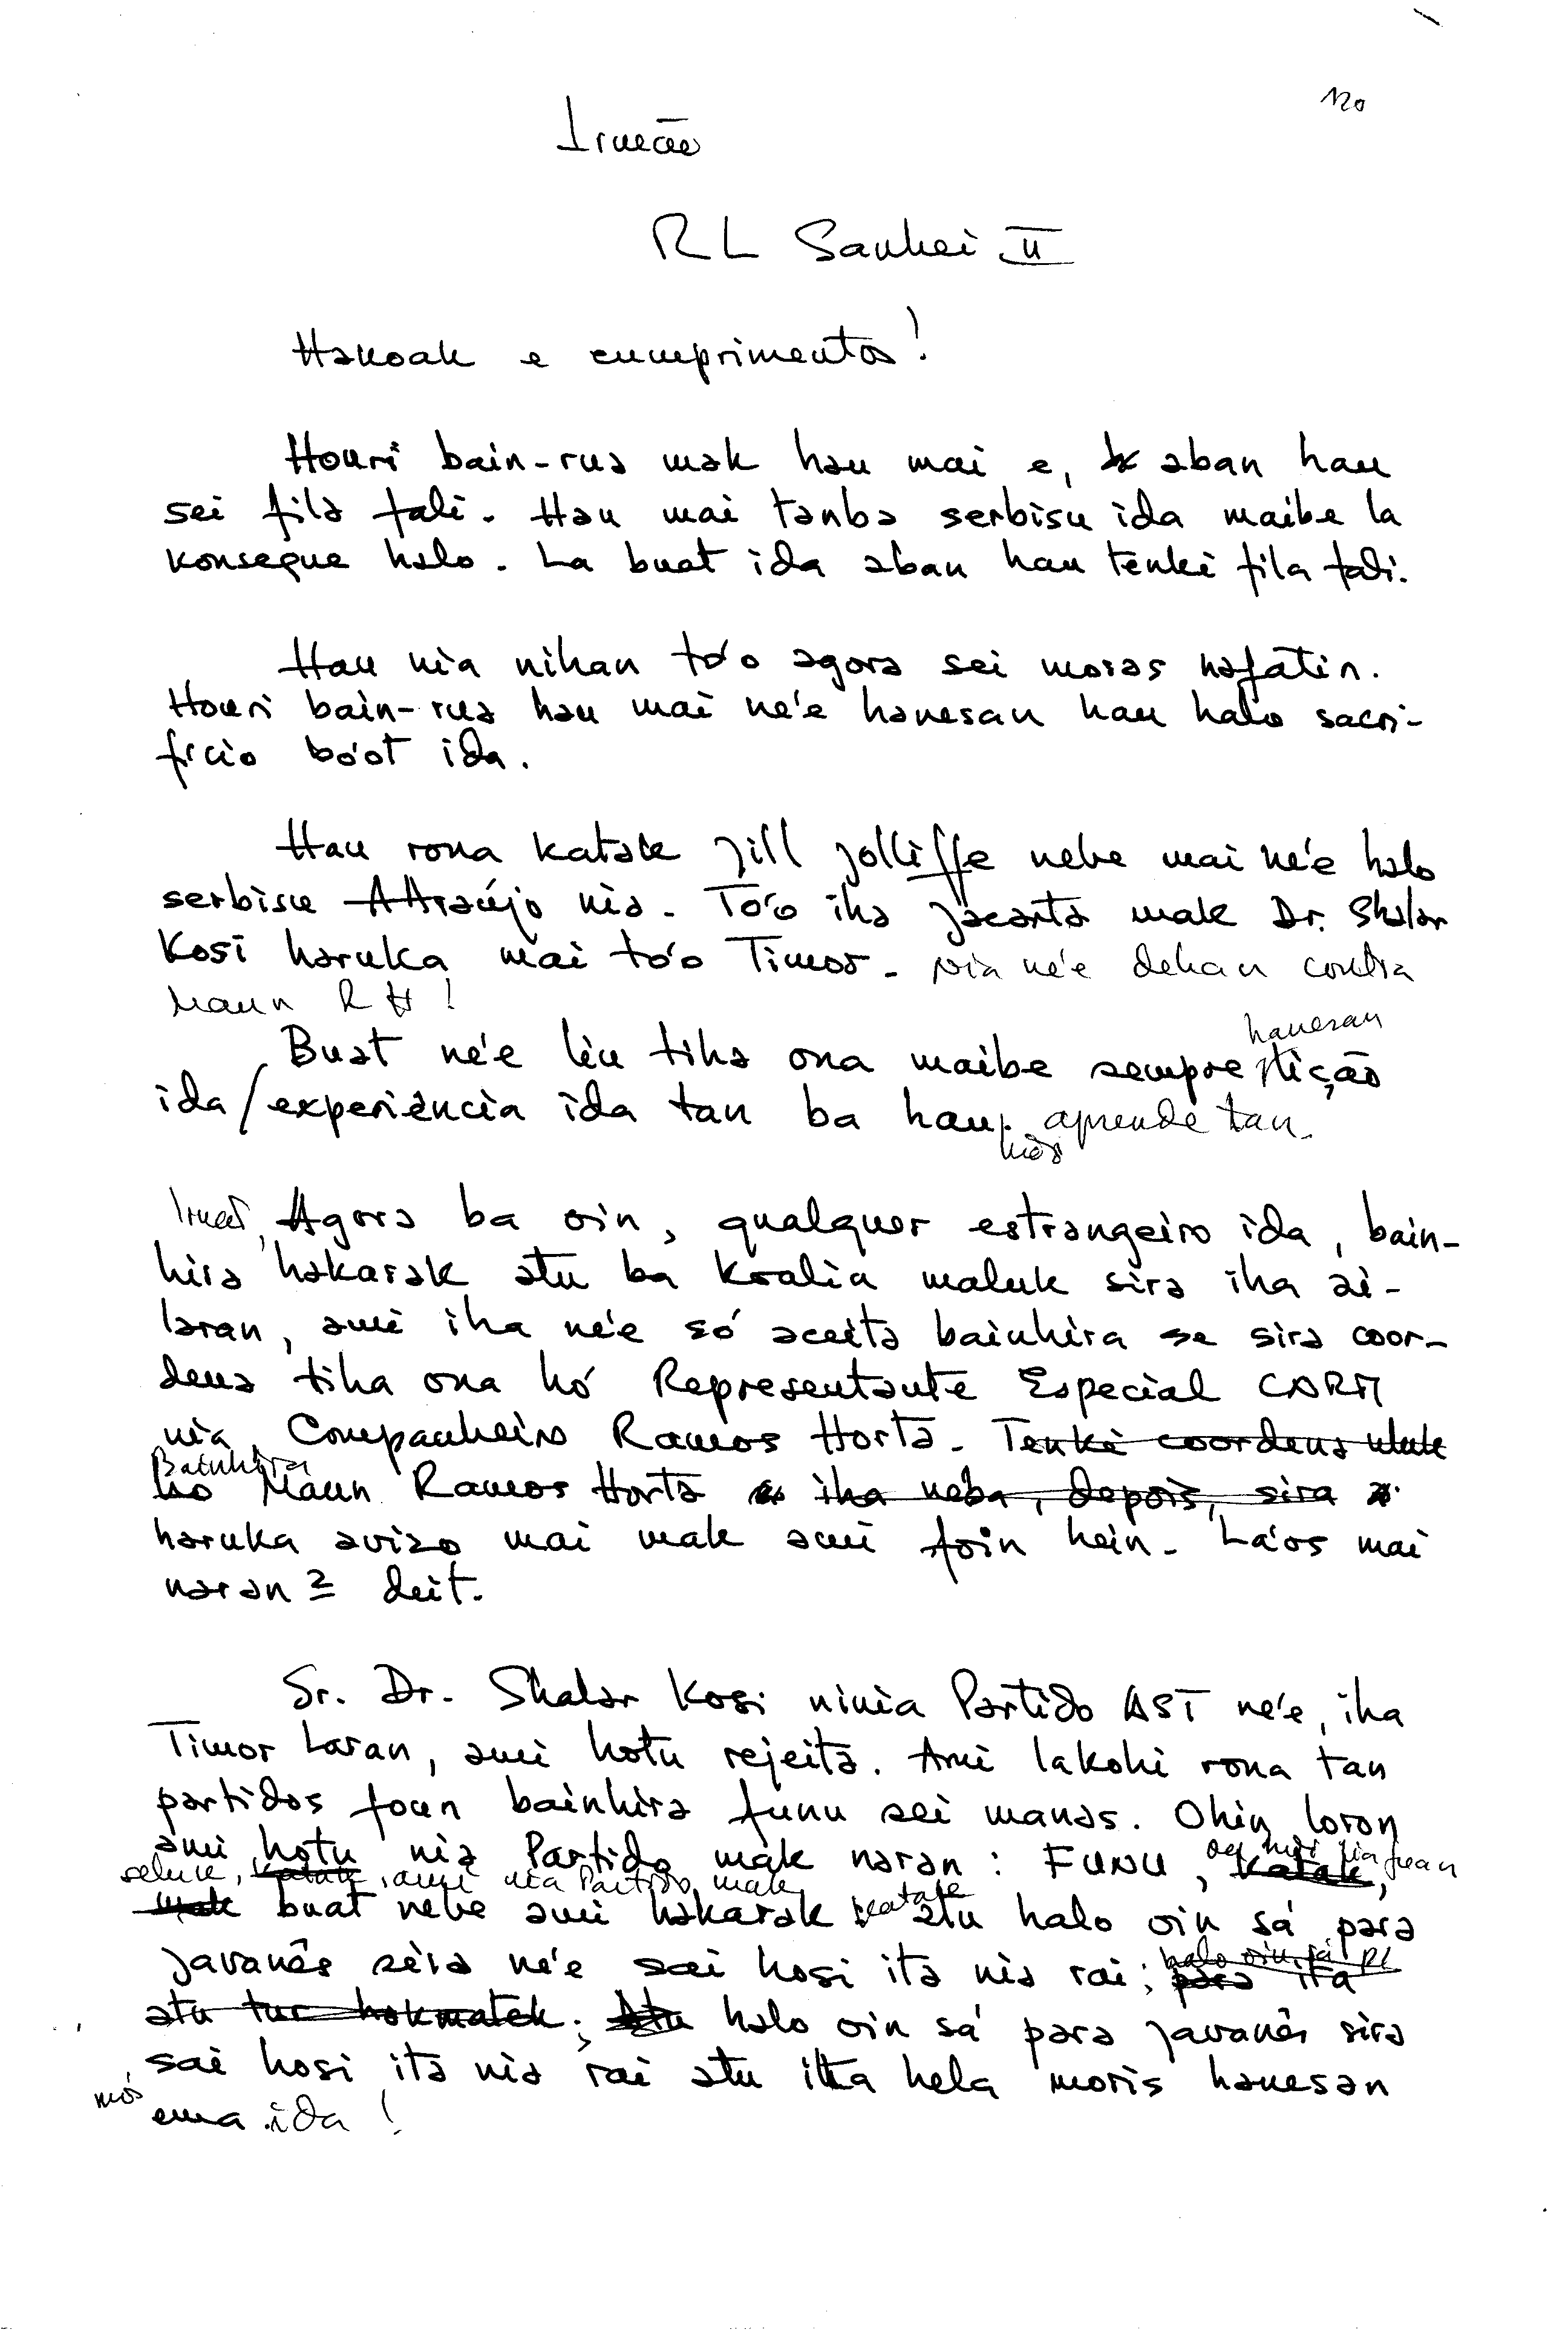 120
Irmão
RL Sanhei II
Hakoak e cumprimentos!
Houri bain-rua mak hau mai e, aban hau
sei fila fali. Hau mai tanba serbisu ida maibe la
konsegue halo. La buat ida aban hau tenki fila fali.
Hau nia nihan to'o agora sei moras nafatin.
Houri bain-rua hau mai ne'e hanesan hau halo sacri-
fício bo'ot ida.
Hau rona katak Jill Jolliffe nebe mai ne'e halo
serbisu AAraújo nia. To'o iha Jacarta mak Dr. Shalar
Kosi haruka mai to'o Timor. Nia ne'e dehan contra
Maun RH!
hanesan
Buat ne'e liu tiha ona maibe sempre lição
ida/experiência ida tan ba hau. aprende tan.
mós
Irmão, Agora ba oin, qualquer estrangeiro ida, bain-
hira hakarak atu ba koalia maluk sira iha ai-
laran, ami iha ne'e só aceita bainhira se sira coor-
dena tiha ona hó Representante Especial CNRM
nia Companheiro Ramos Horta. Tenki coordena uluk
Bainhira
ho Maun Ramos Horta iha neba, depois, sira
haruka avizo mai mak ami foin hein. La'os mai
naran 2 deit.
Sr. Dr. Shalar Kosi ninia Partido AST ne'e, iha
Timor Laran, ami hotu rejeita. Ami lakohi rona tan
partidos foun bainhira funu sei manas. Ohin loron
ami hotu nia Partido mak naran: FUNU, katak,
seluk, katak, ami nia Partido mak
mak buat nebe ami hakarak katak atu halo oin sá para
javanês sira ne'e sai hosi ita nia rai; para ita
halo oin sá
atu tur hakmatek; atu halo oin sá para javanês sira
sai hosi ita nia rai atu ita hela moris hanesan
mós
ema ida!